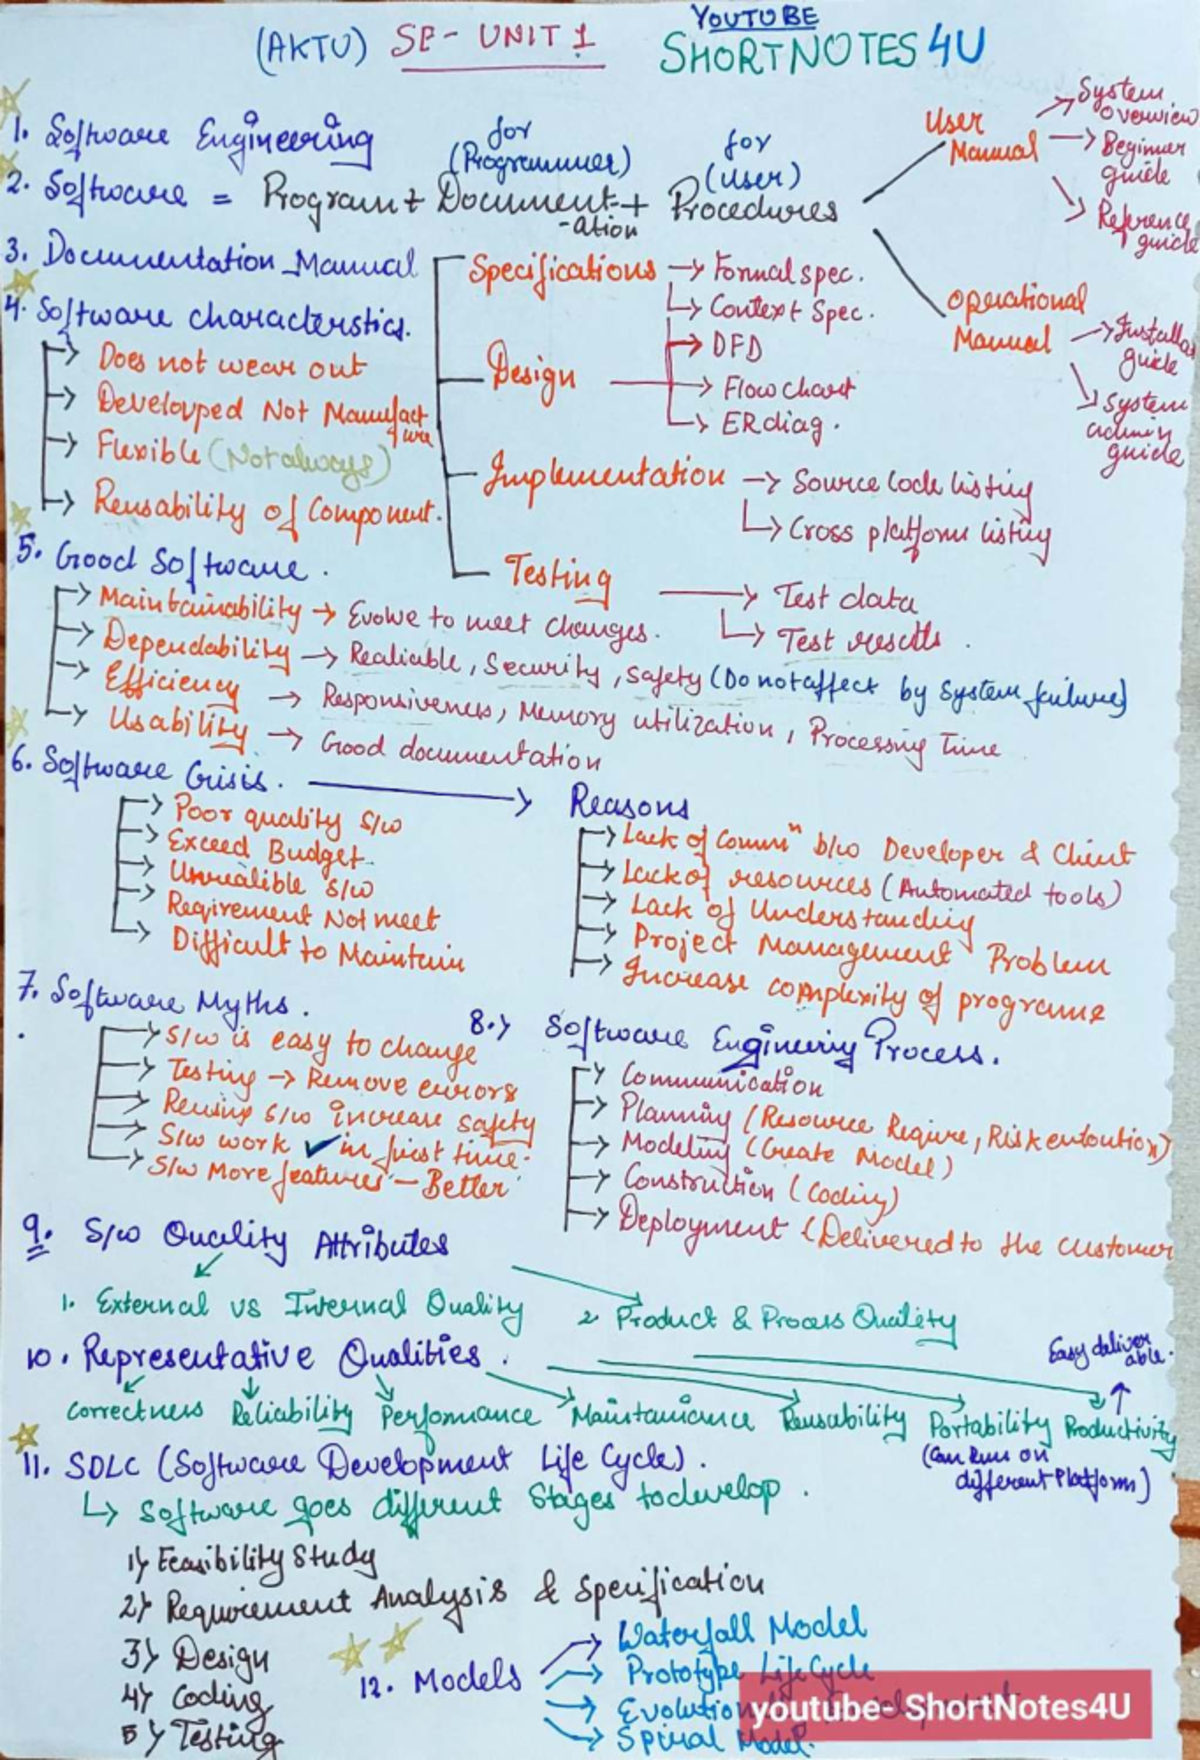 YOUTUBE
(AKTU) SE- UNIT 1 SHORTNOTES 4U
1. Software Engineering
for (Programmer)
for (User)
2. Software = Program + Document-ation + Procedures
User Manual
→ System overview
→ Beginner guide
→ Reference guide
Operational Manual
→ Installa guide
→ System admin guide
3. Documentation Manual
Specifications → Formal spec.
→ Context Spec.
Design → DFD
→ Flow chart
→ ER diag.
Implementation → Source Code listing
→ Cross platform listing
Testing → Test data
→ Test results.
4. Software characterstics.
→ Does not wear out
→ Developed Not Manufacture
→ Flexible (Not always)
→ Reusability of Component.
5. Good Software.
→ Maintainability → Evolve to meet changes.
→ Dependability → Realiable, Security, Safety (Do not affect by System failure)
→ Efficiency → Responsiveness, Memory utilization, Processing Time
→ Usability → Good documentation
6. Software Crisis. → Reasons
→ Poor quality S/w
→ Exceed Budget.
→ Unrealible S/w
→ Reqirement Not meet
→ Difficult to Maintain
→ Lack of Commⁿ b/w Developer & Client
→ Lack of resources (Automated tools)
→ Lack of Understanding
→ Project Management Problem
→ Increase complexity of programe
7. Software Myths.
→ S/w is easy to change
→ Testing → Remove errors
→ Reusing S/w increase safety
→ S/w work ✓ in first time.
→ S/w More features - Better
8.) Software Enginering Process.
→ Communication
→ Planning (Resource Reqire, Risk
→ Modeling (Create Model)
→ Construction (Coding)
→ Deployment (Delivered to the customer
9. S/w Quality Attributes
1. External vs Internal Quality
2. Product & Process Quality
10. Representative Qualities.
Correctness Reliability Performance Maintaniance Reusability Portability Productivity
Easy deliverable.
(Can Run on different Platform)
11. SDLC (Software Development Life Cycle).
↳ Software goes different Stages to develop.
1) Feasibility Study
2) Requirement Analysis & Specification
3) Design
4) Coding
5) Testing
12. Models
→ Waterfall Model
→ Prototype Life Cycle
→ Spiral Model.
youtube- ShortNotes4U